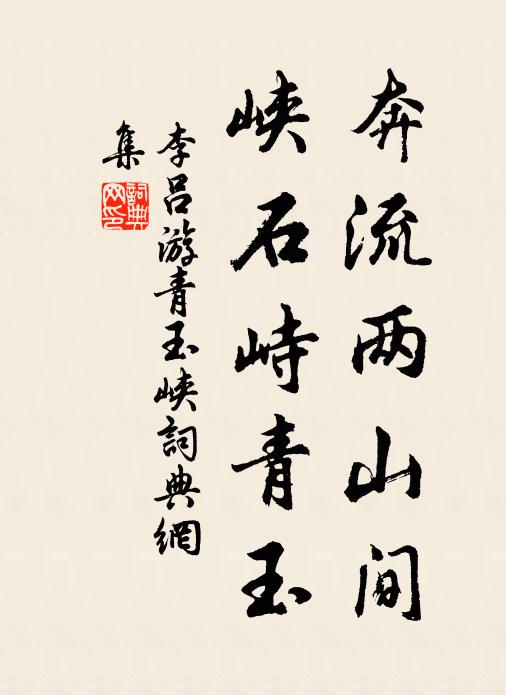 奔流两山间
峡石峙青玉
李吕游青玉峡詞典網
集
詞典网印